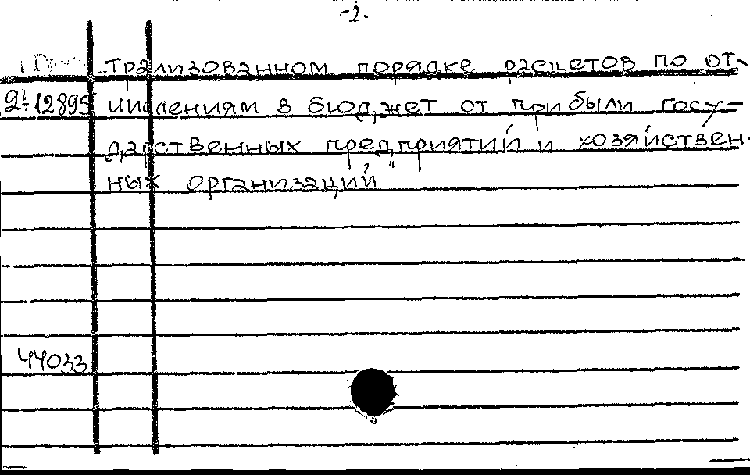 -2-
трализованном порядке расчетов по от-
2-12895 числениям в бюджет от прибыли госу-
дарственных предприятий и хозяйствен-
ных организаций"
44033